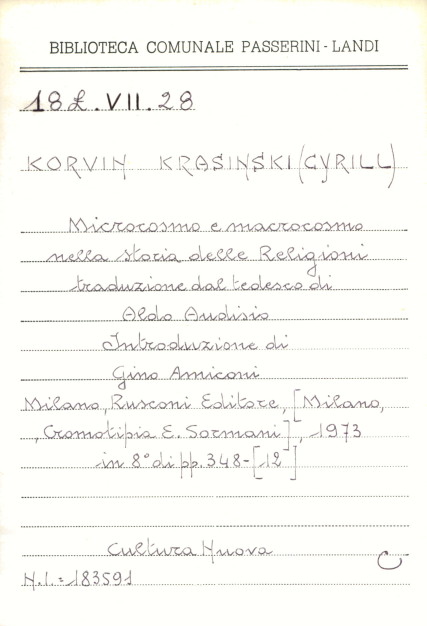 BIBLIOTECA COMUNALE PASSERINI - LANDI
18L.VII.28
KORVIN KRASINSKI (CYRILL)
Microcosmo e macrocosmo
nella storia delle Religioni
traduzione dal tedesco di
Aldo Audisio
Introduzione di
Gino Amiconi
Milano, Rusconi Editore, [Milano,
, Cromotipia E. Sormani], 1973
in 8° di pp. 348-[12]
Cultura Nuova
C
N.I. = 183591